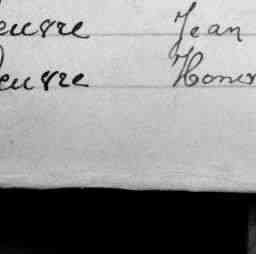 euvre Jean
euvre Honor